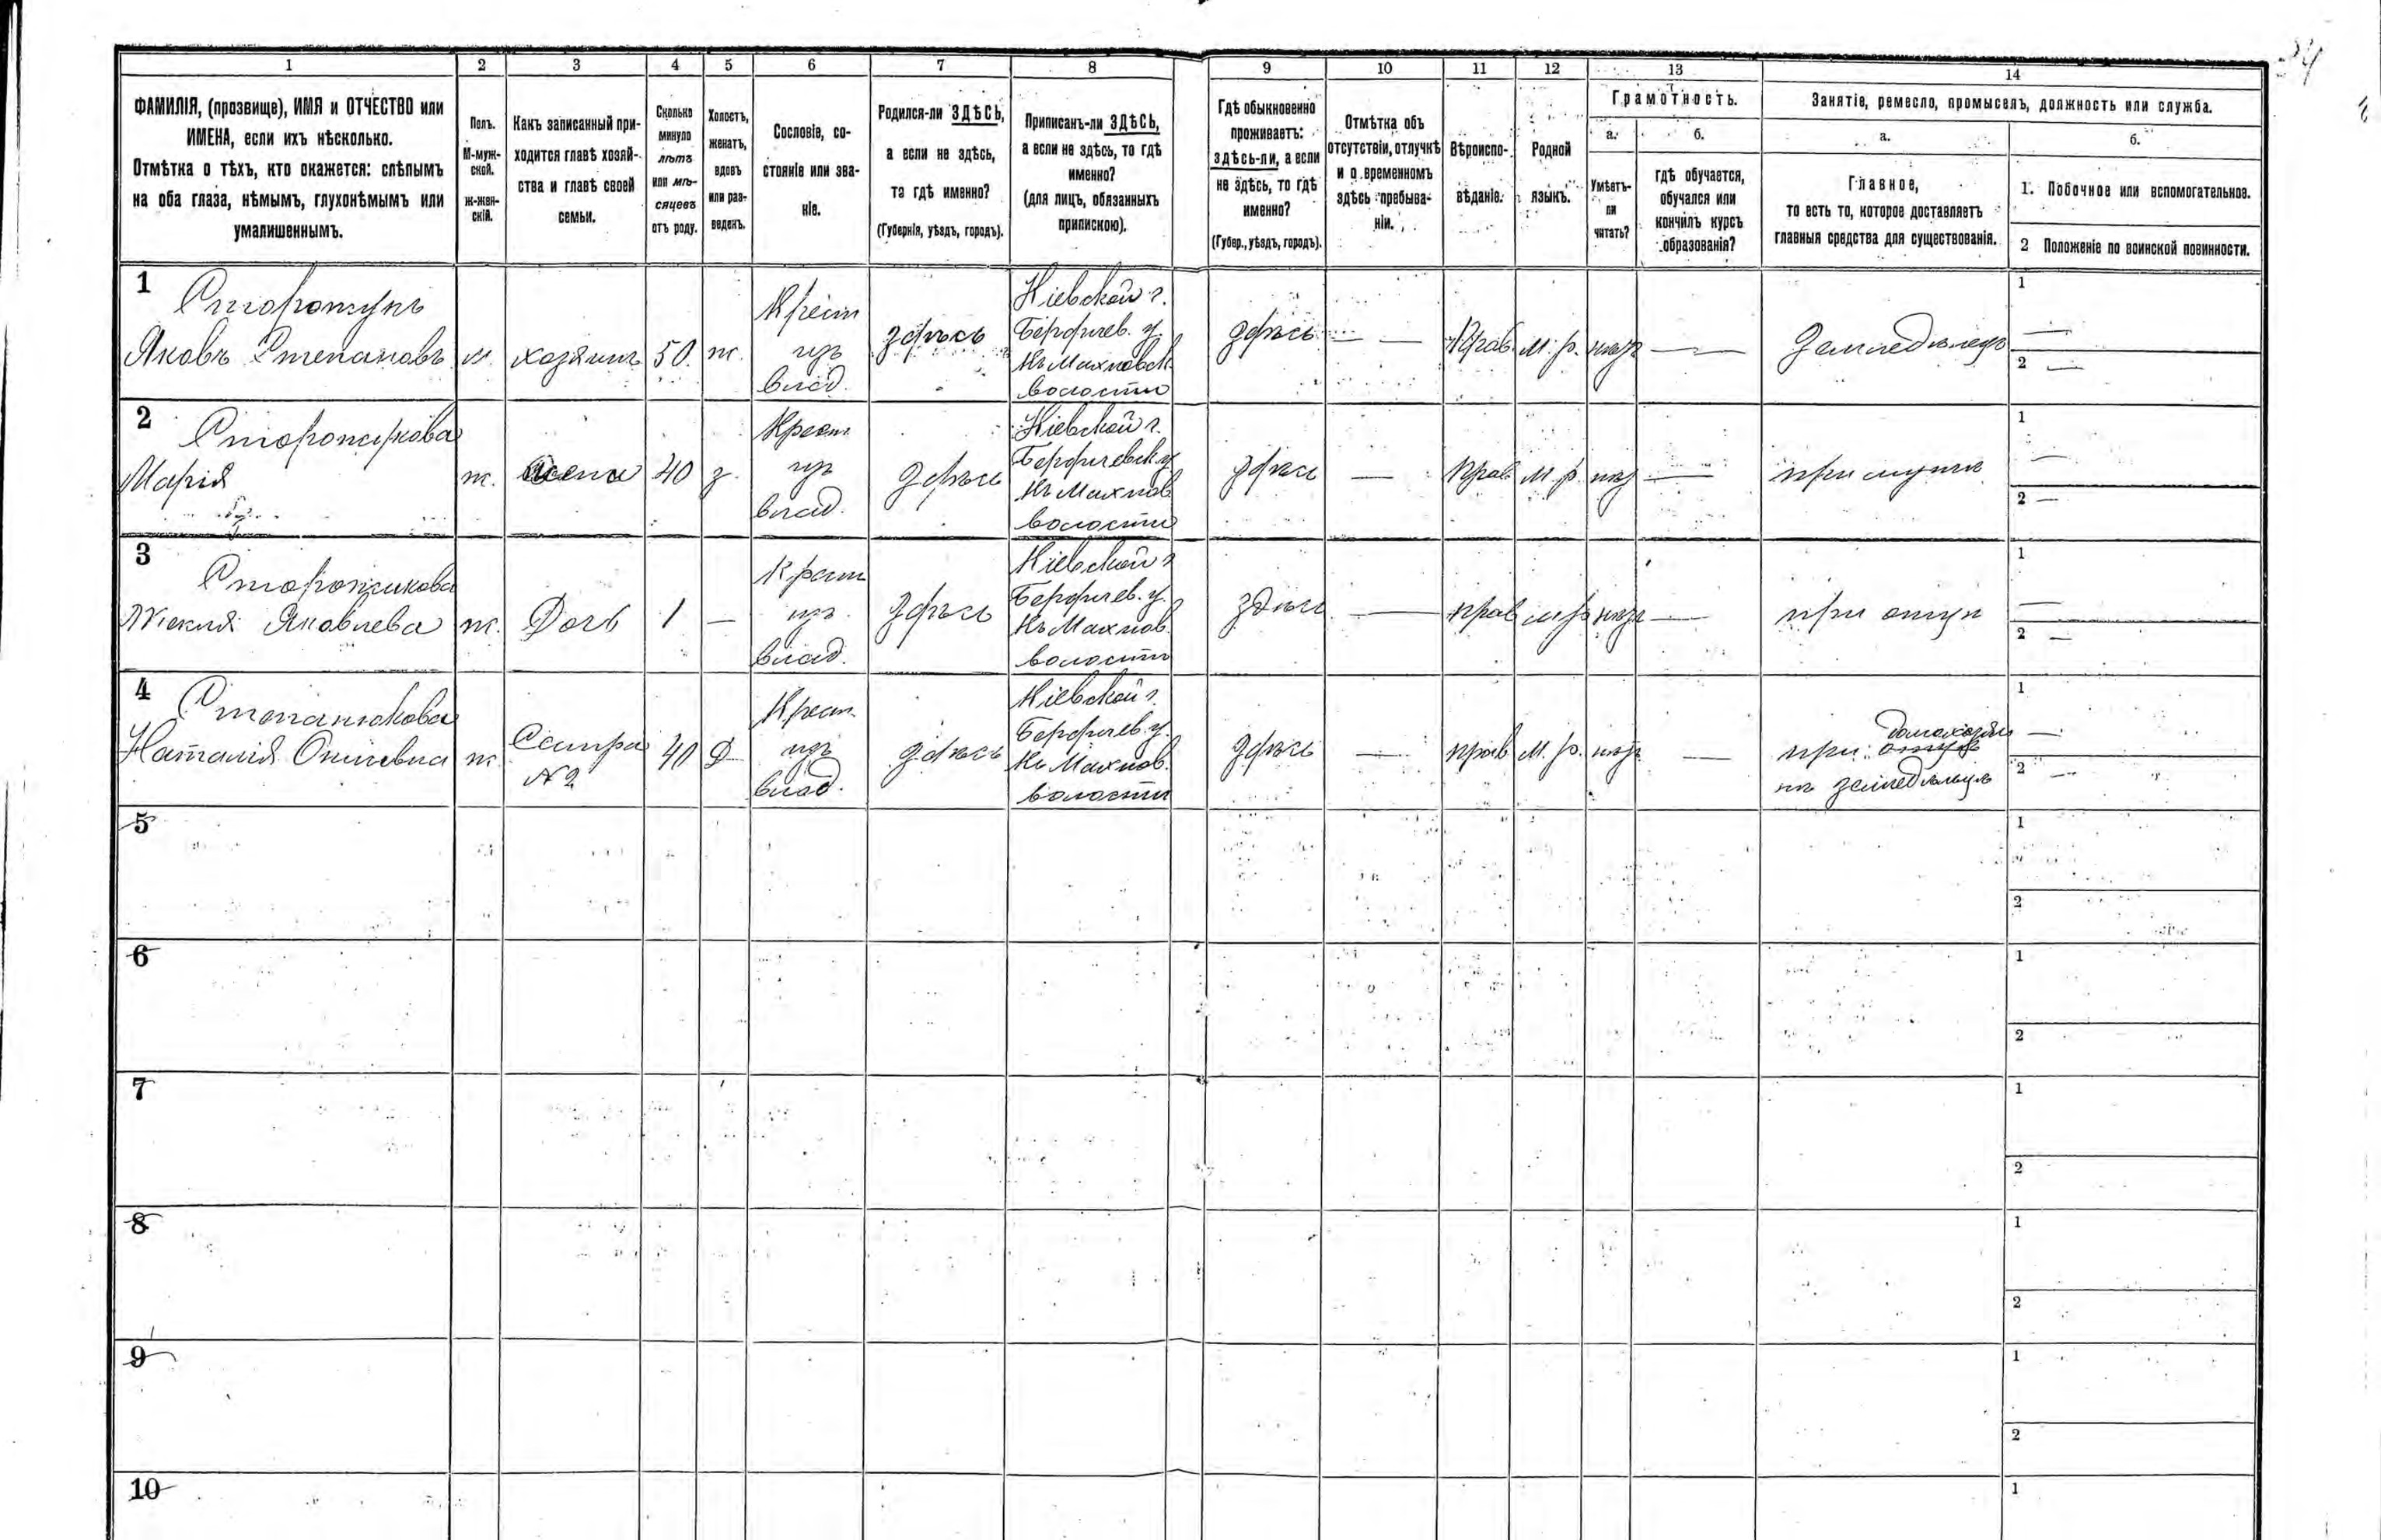 1 2 3 4 5 6 7 8 9 10 11 12 13 14
ФАМИЛІЯ, (прозвище), ИМЯ и ОТЧЕСТВО или
ИМЕНА, если ихъ нѣсколько.
Отмѣтка о тѣхъ, кто окажется: слѣпымъ
на оба глаза, нѣмымъ, глухонѣмымъ или
умалишеннымъ.
Полъ.
М-муж-
ской.
ж-жен-
скій.
Какъ записанный при-
ходится главѣ хозяй-
ства и главѣ своей
семьи.
Сколько
минуло
лѣтъ
или мѣ-
сяцевъ
отъ роду.
Холостъ,
женатъ,
вдовъ
или раз-
веденъ.
Сословіе, со-
стояніе или зва-
ніе.
Родился-ли ЗДѢСЬ,
а если не здѣсь,
та гдѣ именно?
(Губернія, уѣздъ, городъ).
Приписанъ-ли ЗДѢСЬ,
а если не здѣсь, то гдѣ
именно?
(для лицъ, обязанныхъ
припискою).
Гдѣ обыкновенно
проживаетъ:
здѣсь-ли, а если
не здѣсь, то гдѣ
именно?
(Губер., уѣздъ, городъ).
Отмѣтка объ
отсутствіи, отлучкѣ
и о временномъ
здѣсь пребыва-
ніи.
Вѣроиспо-
вѣданіе.
Родной
языкъ.
Грамотность.
а.
Умѣетъ-
ли
читать?
б.
гдѣ обучается,
обучался или
кончилъ курсъ
образованія?
Занятіе, ремесло, промыселъ, должность или служба.
а.
Главное,
то есть то, которое доставляетъ
главныя средства для существованія.
б.
1. Побочное или вспомогательное.
2 Положеніе по воинской повинности.
1
Яковъ Степановъ
м.
хозяинъ
50.
ж.
Крест
изъ
влад.
здѣсь
Кіевской г.
Бердичев. у.
Къ Махновск.
волости
здѣсь
— —
Прав.
м. р.
—
Земледѣлецъ
1 —
2 —
2
Марія
ж.
жена
40
з.
Крест.
изъ
влад.
здѣсь
Кіевской г.
Бердичевск. у
Къ Махнов
волости
здѣсь
—
прав
м. р.
—
при мужѣ
1 —
2 —
3
Яковлева
ж.
Дочь
1
—
Крест
изъ
влад.
здѣсь
Кіевской г
Бердичев. у.
Къ Махнов.
волости
здѣсь
—
прав
м р
—
при отцѣ
1 —
2 —
4
Степанюкова
Наталія
ж.
Сестра
№ 2
40
Д
Крест.
изъ
влад.
здѣсь
Кіевской г.
Бердичев. у.
Къ Махнов.
волости
здѣсь
—
прав
м. р.
—
при
земледѣльцѣ
1 —
2 —
5
1
2
6
1
2
7
1
2
8
1
2
9
1
2
10
1